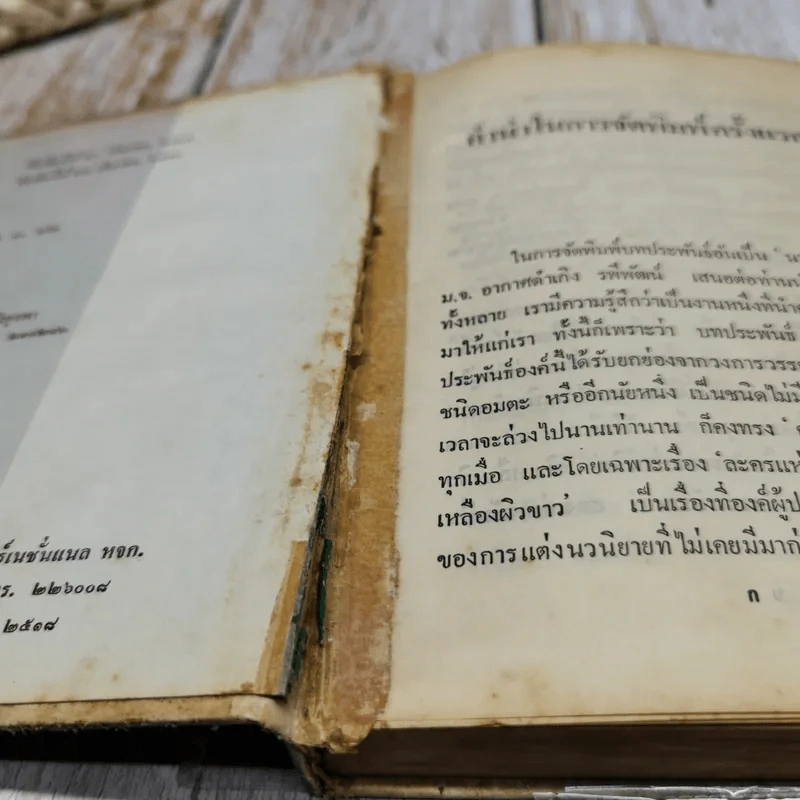 ร์เนชั่นแนล หจก.
ร. ๒๒๖๐๐๘
๒๕๑๘
คำนำในการจัดพิมพ์ครั้งแรก
ในการจัดพิมพ์บทประพันธ์อันเป็น
ม.จ. อากาศดำเกิง รพีพัฒน์ เสนอต่อท่าน
ทั้งหลาย เรามีความรู้สึกว่าเป็นงานหนึ่งที่นำ
มาให้แก่เรา ทั้งนี้ก็เพราะว่า บทประพันธ์
ประพันธ์องค์นี้ได้รับยกย่องจากวงการวรร
ชนิดอมตะ หรืออีกนัยหนึ่ง เป็นชนิดไม่มี
เวลาจะล่วงไปนานเท่านาน ก็คงทรง
ทุกเมื่อ และโดยเฉพาะเรื่อง 'ละครแห่
เหลืองผิวขาว' เป็นเรื่องที่องค์ผู้ป
ของการแต่งนวนิยายที่ไม่เคยมีมาก่
ก